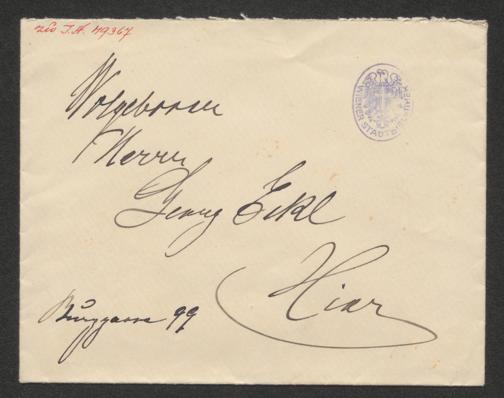 zu I.N. 49367
WIENER STADTBIBLIOTHEK
Wolgeboren
Herrn
Georg Eckl
Hier
Burggasse 99